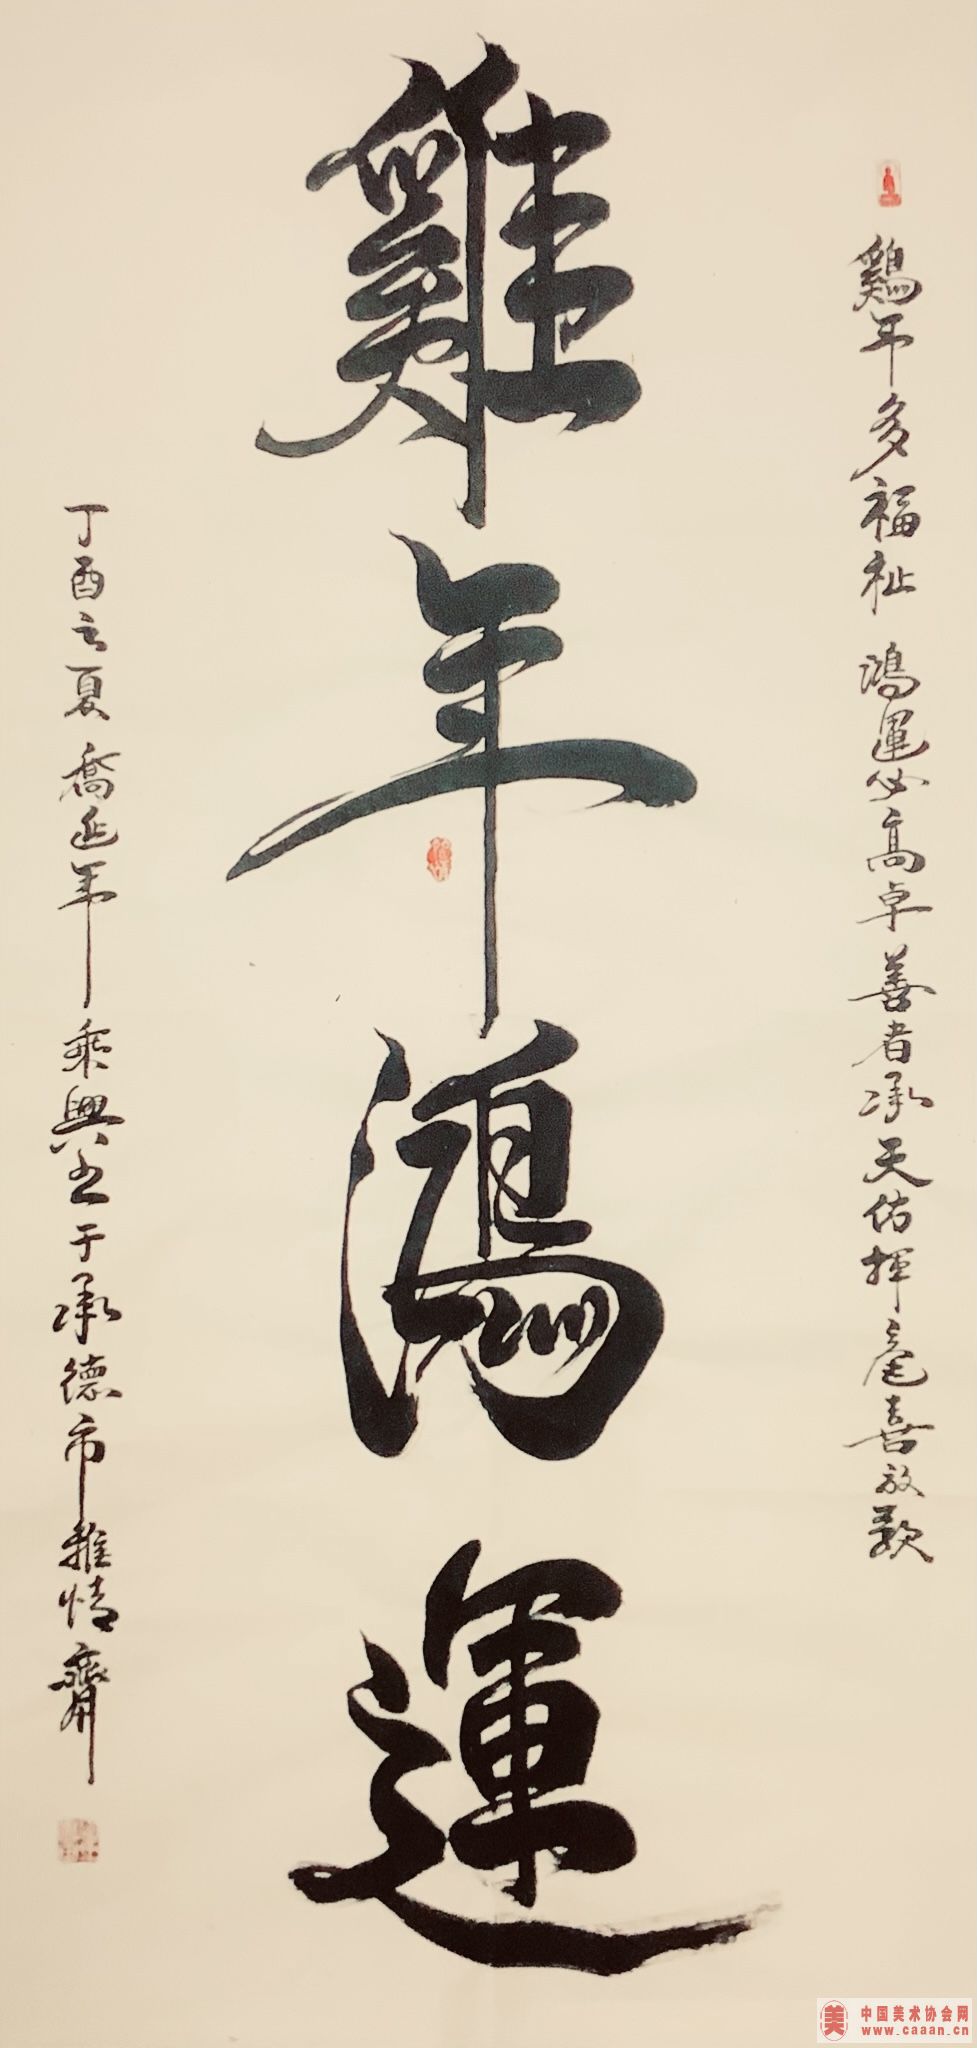 鷄年多福祉 鴻運必高卓 善者承天佑 揮毫喜放歌
雞年鴻運
丁酉之夏 喬延年 乘興書于承德市雅情齋
美
中国美术协会网
www.caaan.cn